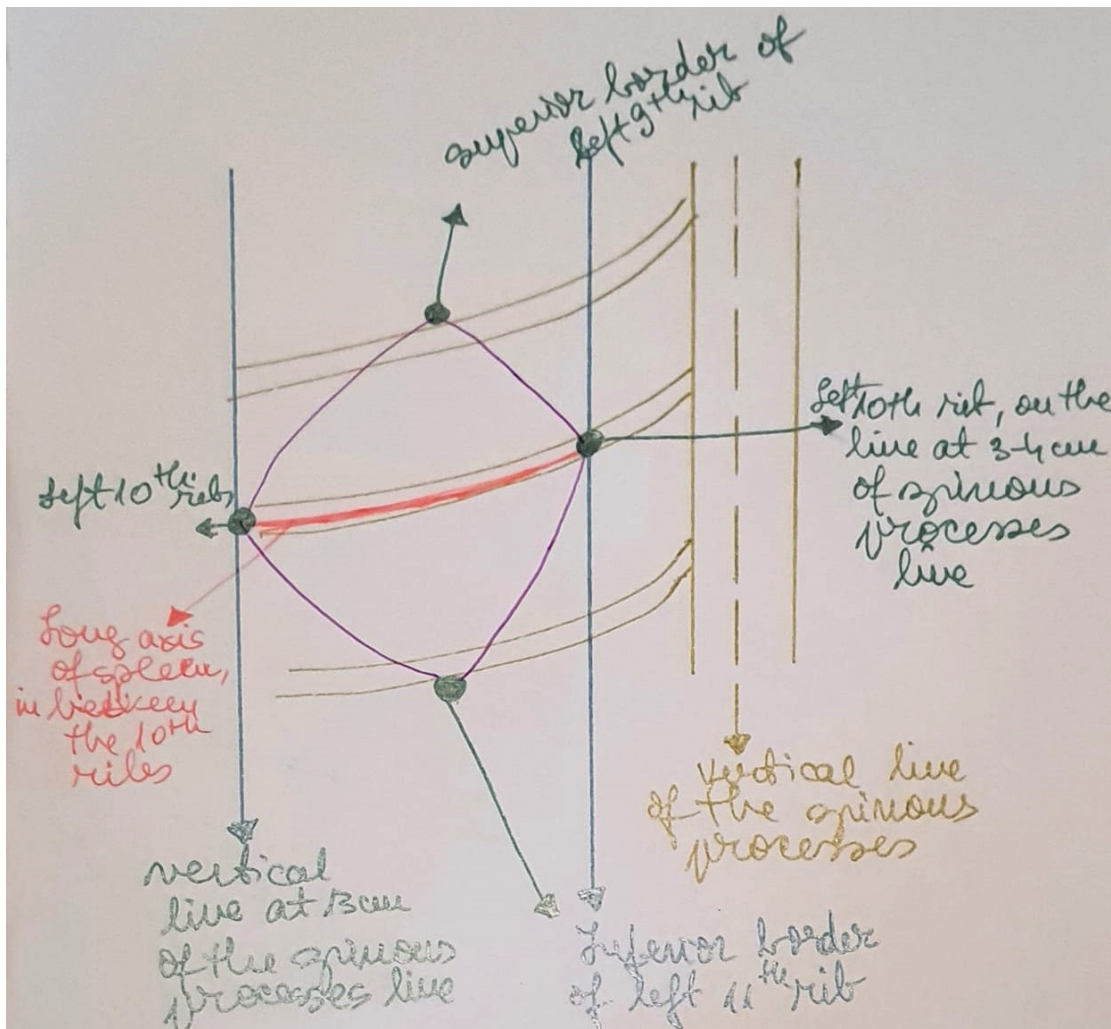 superior border of
left 9th rib
left 10th rib,
left 10th rib, on the
line at 3-4 cm
of spinous
processes
line
Long axis
of spleen,
in between
the 10th
ribs
vertical line
of the spinous
processes
vertical
line at 13cm
of the spinous
processes line
Inferior border
of left 11th rib